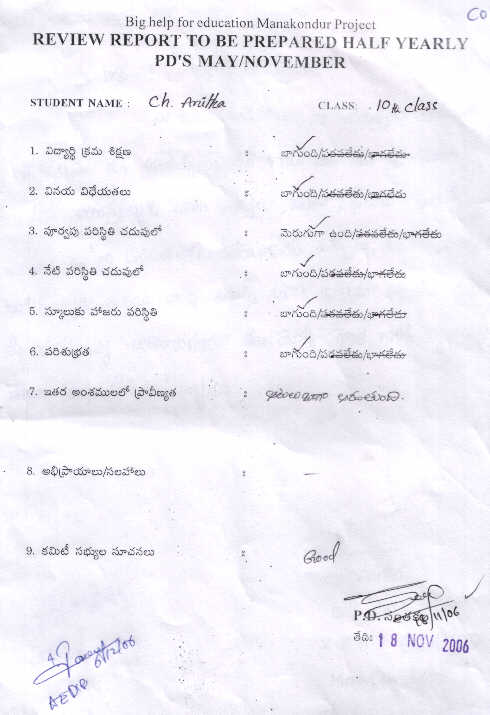 CO
Big help for education Manakondur Project
REVIEW REPORT TO BE PREPARED HALF YEARLY
PD'S MAY/NOVEMBER
STUDENT NAME : Ch. Anitha CLASS: 10th class
1. విద్యార్థి క్రమ శిక్షణ : బాగుంది/పరవలేదు/భాగలేదు
2. వినయ విధేయతలు : బాగుంది/పరవలేదు/భాగలేదు
3. పూర్వపు పరిస్థితి చదువులో : మెరుగుగా ఉంది/పరవలేదు/భాగలేదు
4. నేటి పరిస్థితి చదువులో : బాగుంది/పరవలేదు/భాగలేదు
5. స్కూలుకు హాజరు పరిస్థితి : బాగుంది/పరవలేదు/భాగలేదు
6. పరిశుభ్రత : బాగుంది/పరవలేదు/భాగలేదు
7. ఇతర అంశములలో ప్రావీణ్యత :
8. అభిప్రాయాలు/సలహాలు : —
9. కమిటీ సభ్యుల సూచనలు : Good
P.D. సంతకం /11/06
తేది: 18 NOV 2006
6/12/06
AEDP